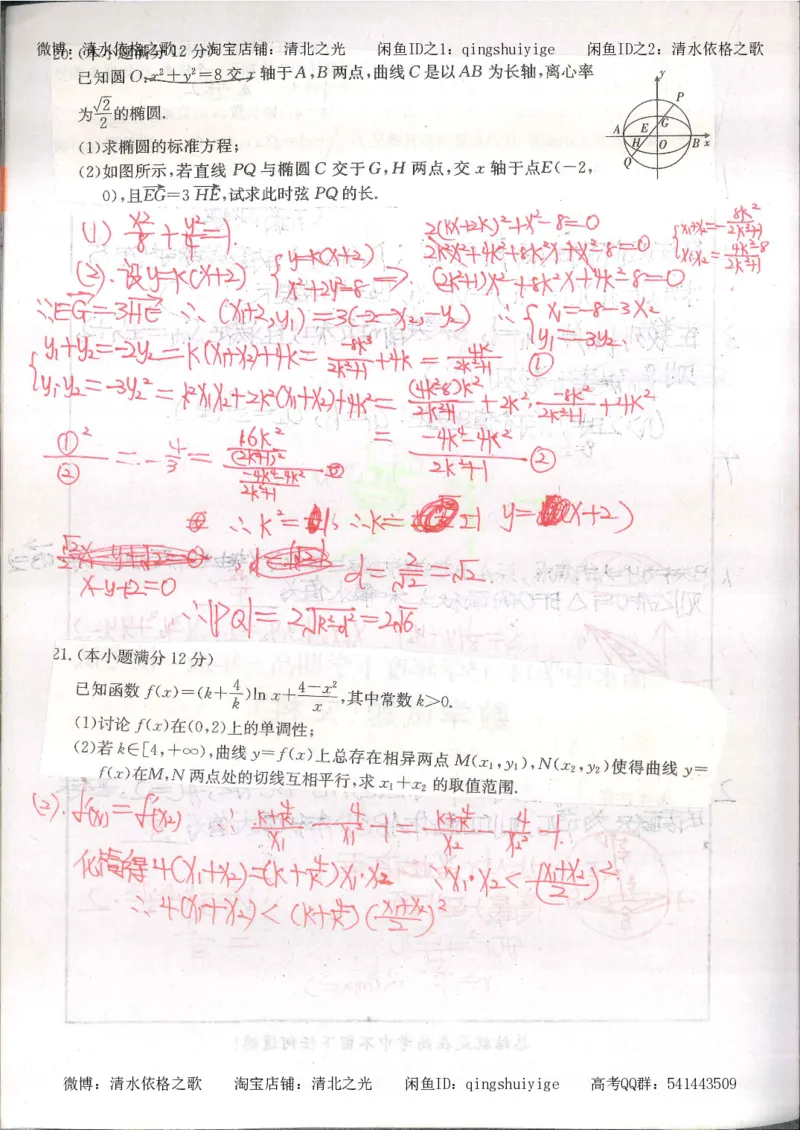 微博：清水依格之歌 淘宝店铺：清北之光 闲鱼ID之1：qingshuiyige 闲鱼ID之2：清水依格之歌
20.(本小题满分12分)
已知圆O:x²+y²=8交x轴于A,B两点,曲线C是以AB为长轴,离心率
为√2/2的椭圆.
(1)求椭圆的标准方程;
(2)如图所示,若直线PQ与椭圆C交于G,H两点,交x轴于点E(-2,
0),且EG=3HE,试求此时弦PQ的长.
y
P
A E G
H O B x
Q
(1) x²/8+y²/4=1.
2(kx+2k)²+x²-8=0
(2).设y=k(x+2) {y=k(x+2) x²+2y²=8 ⇒
2k²x²+4k²+8k²x+x²-8=0
(2k²+1)x²+8k²x+4k²-8=0
{x₁+x₂=-8k²/(2k²+1) x₁x₂=(4k²-8)/(2k²+1)
∵EG=3HE ∴(x₁+2,y₁)=3(-2-x₂,-y₂) ∴{x₁=-8-3x₂ y₁=-3y₂.
{y₁+y₂=-2y₂=k(x₁+x₂)+4k=-8k³/(2k²+1)+4k=4k/(2k²+1) ①
y₁·y₂=-3y₂²=k²x₁x₂+2k²(x₁+x₂)+4k²=(4k²-8)k²/(2k²+1)+2k²·-8k²/(2k²+1)+4k²
=(-4k⁴-4k²)/(2k²+1) ②
①²/② =-4/3=
∴k²=1 ∴k=±1 y=(x+2)
x-y+2=0
d=2/√2=√2.
∴|PQ|=2√(R²-d²)=2√6.
21.(本小题满分12分)
已知函数f(x)=(k+4/k)ln x+(4-x²)/x,其中常数k>0.
(1)讨论f(x)在(0,2)上的单调性;
(2)若k∈[4,+∞),曲线y=f(x)上总存在相异两点M(x₁,y₁),N(x₂,y₂)使得曲线y=
f(x)在M,N两点处的切线互相平行,求x₁+x₂的取值范围.
(2).f'(x₁)=f'(x₂) ∴(k+4/k)/x₁-4/x₁²-1=(k+4/k)/x₂-4/x₂²-1.
化简得4(x₁+x₂)=(k+4/k)x₁·x₂ ∵x₁·x₂<((x₁+x₂)/2)²
∴4(x₁+x₂)<(k+4/k)((x₁+x₂)/2)²
微博：清水依格之歌 淘宝店铺：清北之光 闲鱼ID：qingshuiyige 高考QQ群：541443509